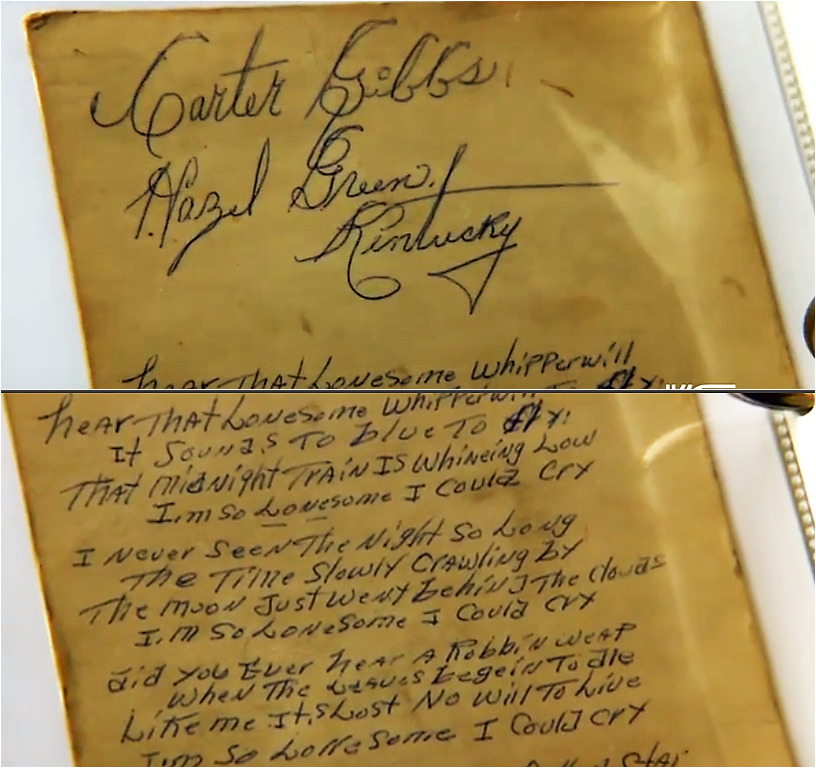 Carter Gibbs
Hazel Green,
Kentucky
hear THAT Lonesome Whipperwill
hear THAT Lonesome Whipperwill
It Sounds To blue To fly.
THAT MidNight TRAIN IS Whineing Low
I,m So Lonesome I Could Cry
I Never SeenThe Night So Long
The Time Slowly Crawling By
The moon Just Went behind The Clouds
I,m So Lonesome I Could Cry
did You Ever hear A Robbin weap
When The Leaves begein To die
Like me It,s Lost No Will To Live
I,m So Lonesome I Could Cry
Star